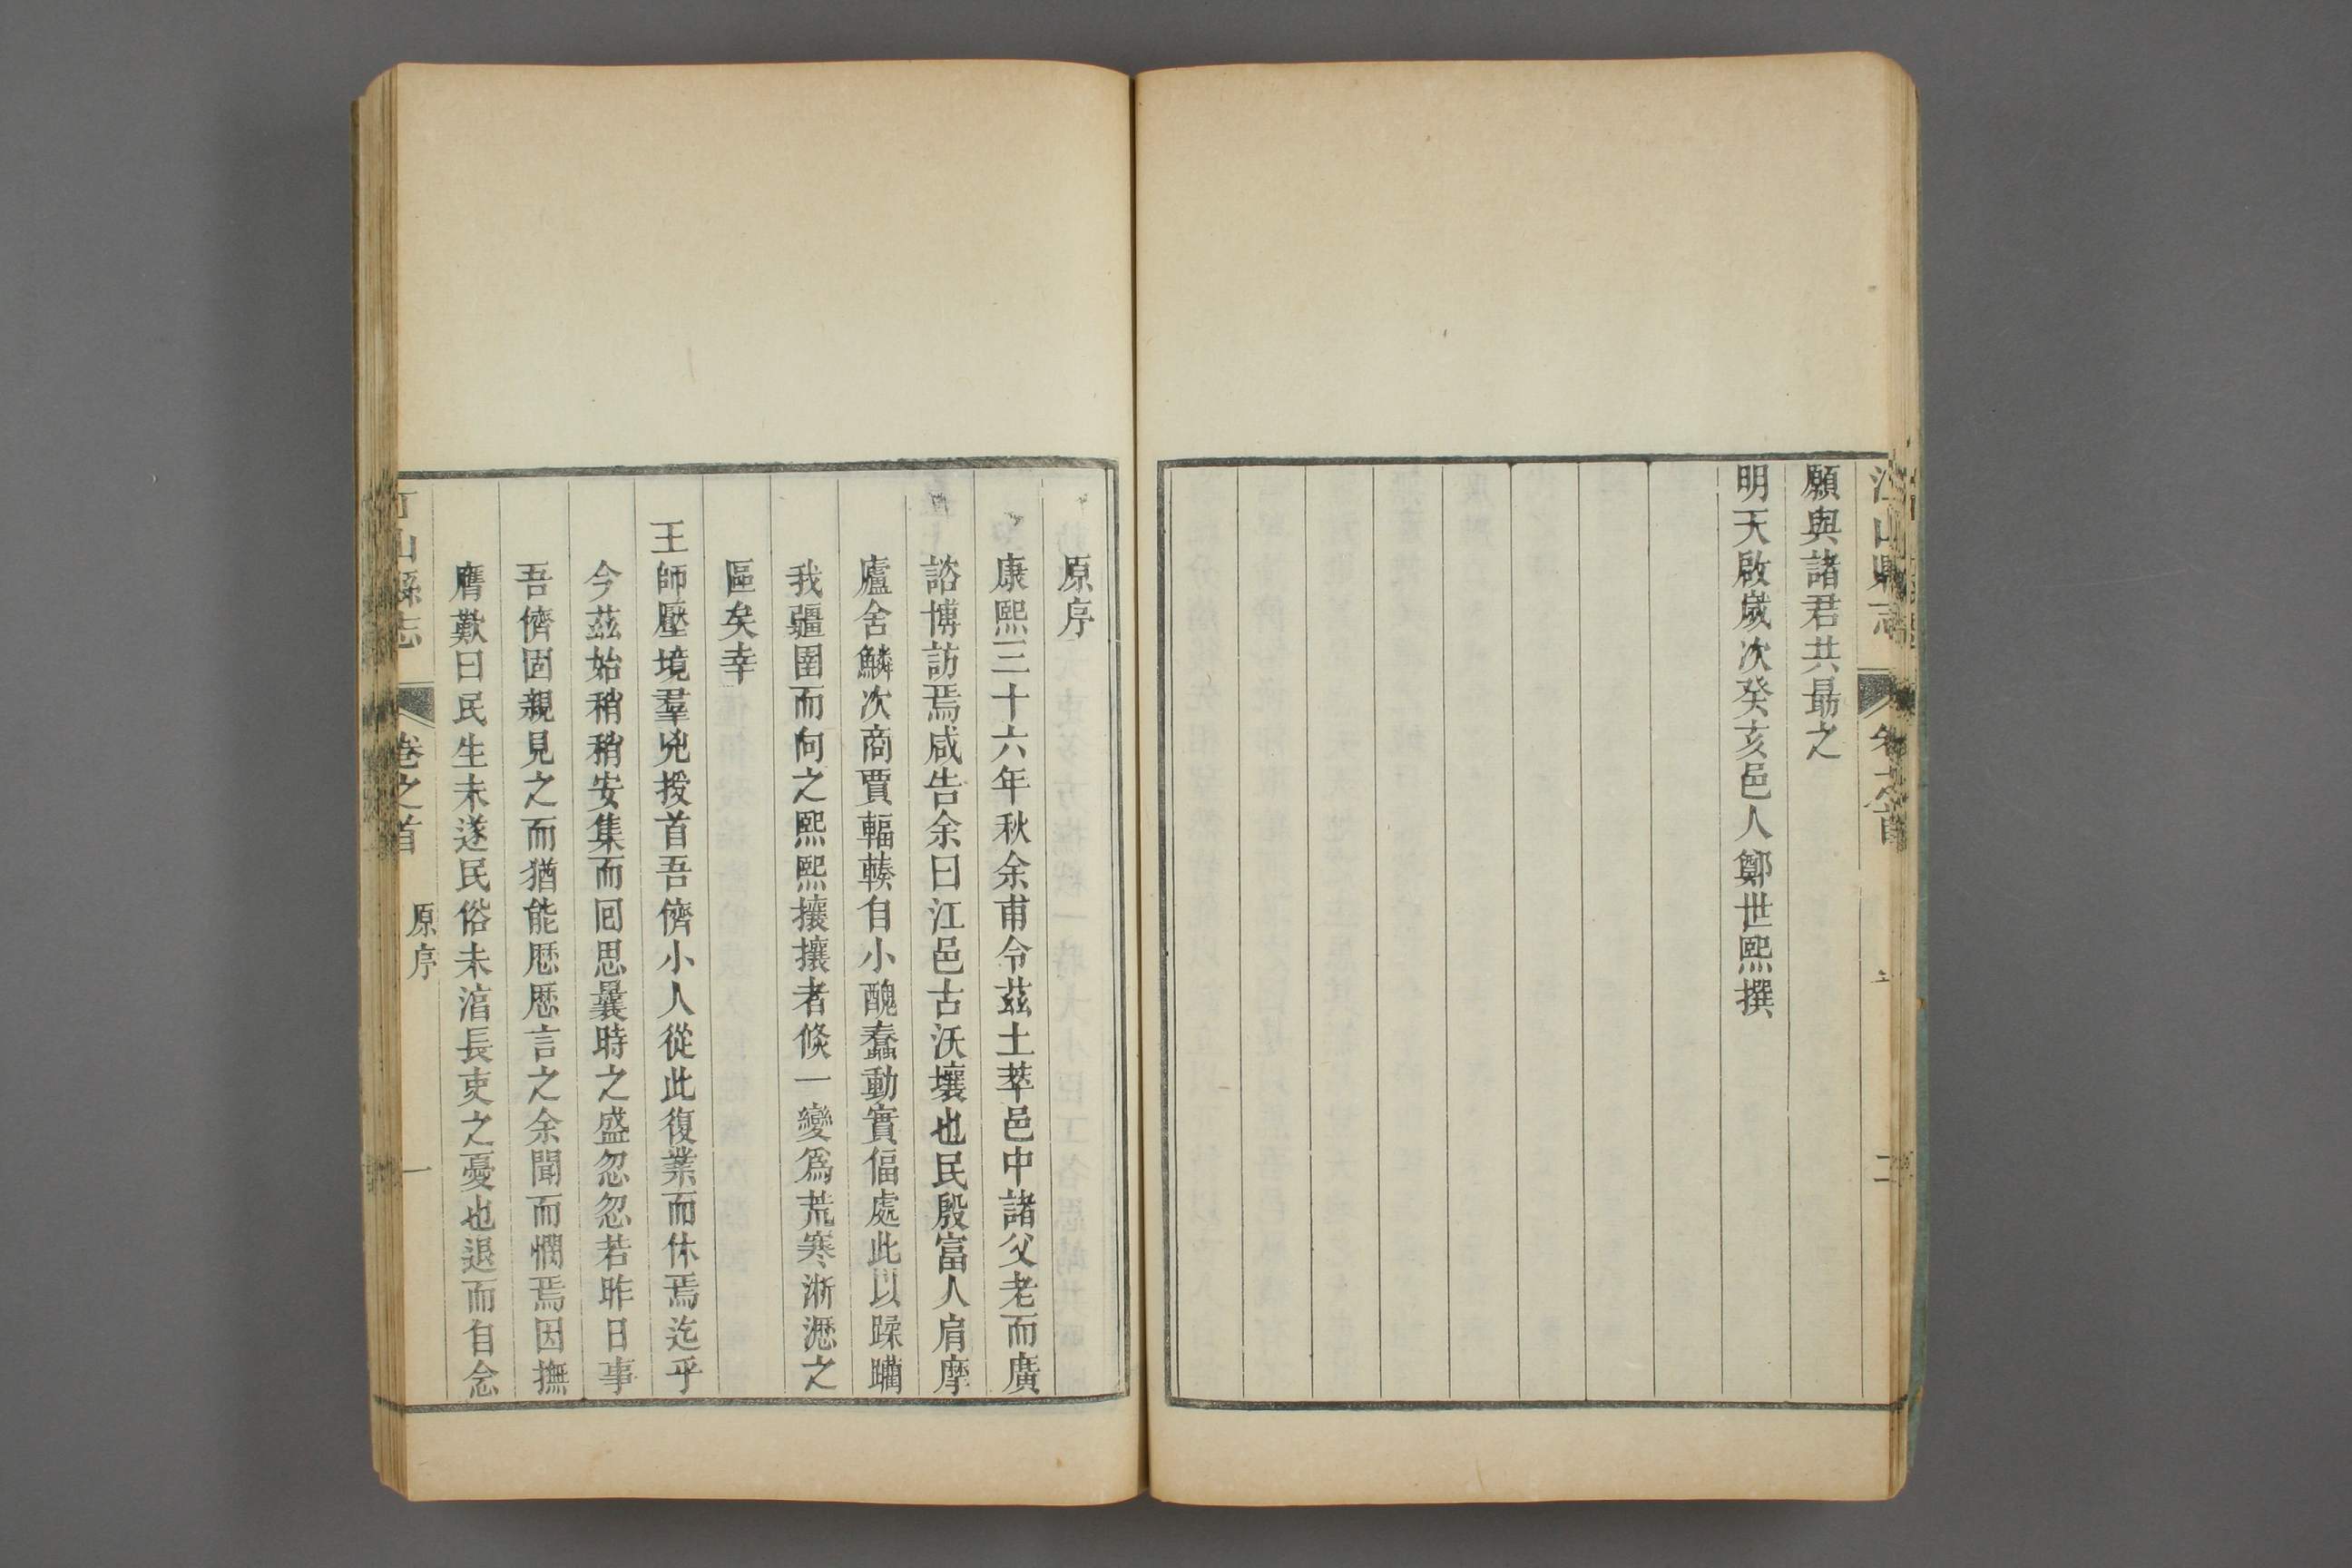 江山縣志
卷之首
二
願與諸君共勗之
明天啟歲次癸亥邑人鄭世熙撰
原序
康熙三十六年秋余甫令茲土萃邑中諸父老而廣
諮博訪焉咸告余曰江邑古沃壤也民殷富人肩摩
廬舍鱗次商賈輻輳自小醜蠢動實偪處此以蹂躪
我疆圉而向之熙熙攘攘者倐一變爲荒寒淅瀝之
區矣幸
王師壓境羣兇授首吾儕小人從此復業而休焉迄乎
今茲始稍稍安集而回思曩時之盛忽忽若昨日事
吾儕固親見之而猶能歷歷言之余聞而憫焉因撫
膺歎曰民生未遂民俗未淯長吏之憂也退而自念
山縣志
卷之首
原序
一